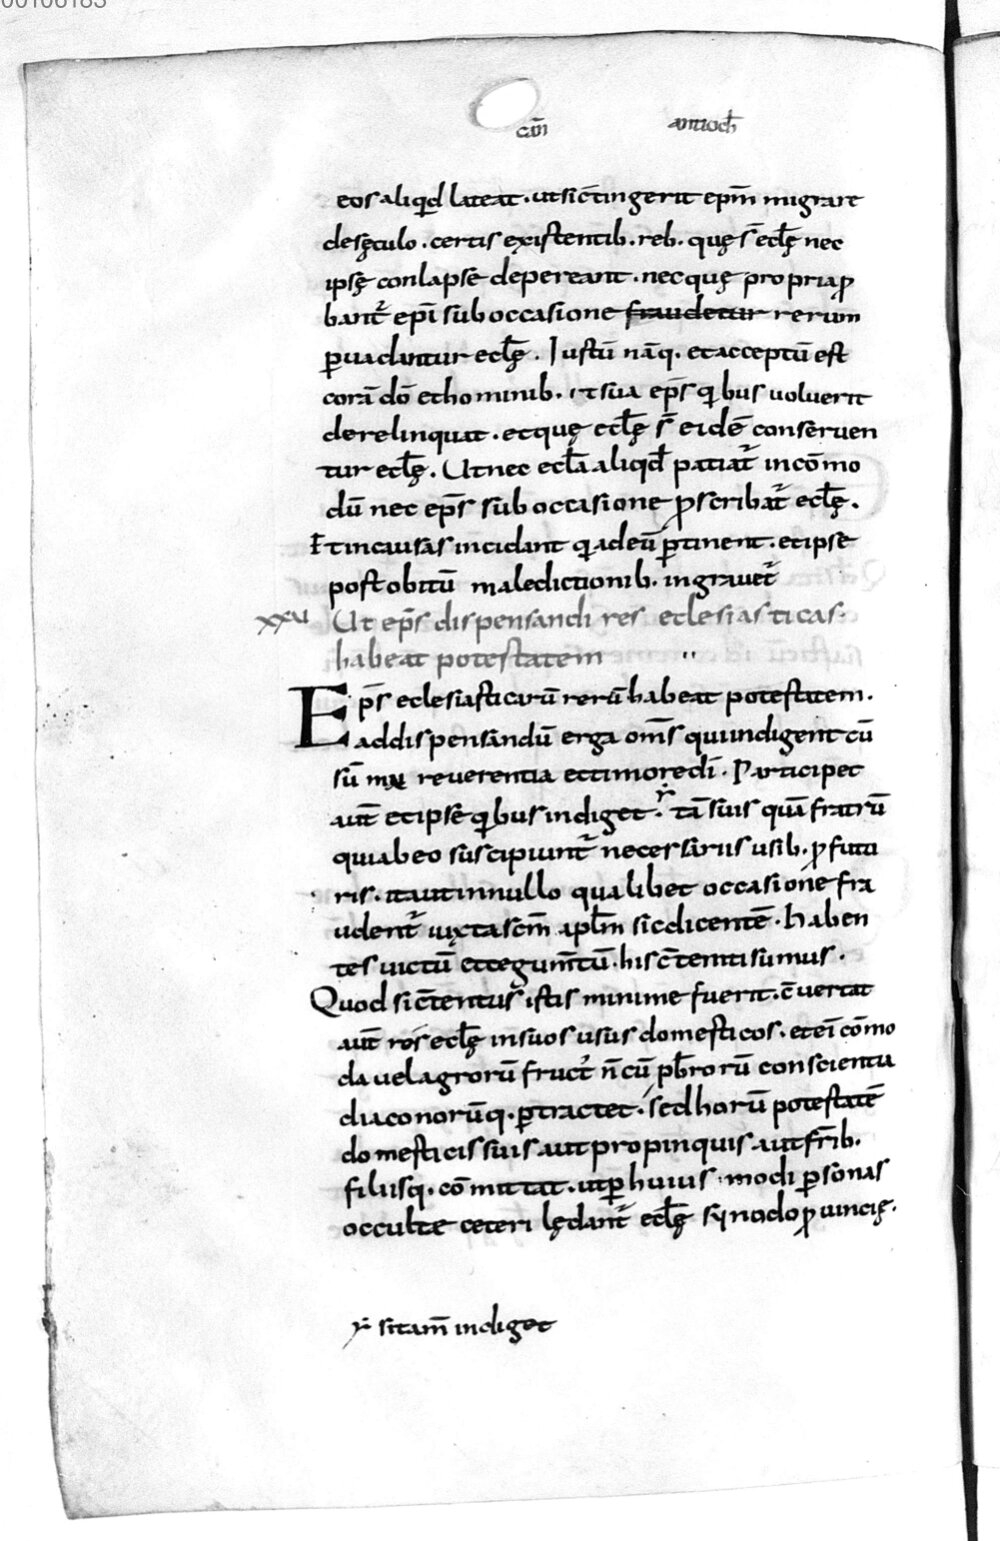 00106183
cañ antioch̄
eos aliqıd lateat · ut si c̄tingerit ep̄m migrare
de sęculo · certis existentib· reb· quę s̄ eclę̄ nec
ipsę conlapsę depereant · nec quę propria ꝓ
bant̄ ep̄i sub occasione fraudetur rerum
ꝑuadantur eclę̄ . Iustū nāq· et acceptū est
corā dō et hominib· ut sua ep̄s qıbus uoluerit
derelinquat · et quę eclę̄ s̄ eidē conseruen
tur eclę̄ . Ut nec ecl̄a aliqıd patiat̄ incōmo
dū nec ep̄s sub occasione ꝓscribat̄ eclę̄ .
Et in causas incidant qı ad eū ꝑtinent · et ipse
post obitū maledictionib· ingrauet̄
xxv Ut ep̄s dispensandi res eclesiasticas·
habeat potestatem
Ep̄s eclesiasticarū rerū habeat potestatem .
ad dispensandū erga om̄s qui indigent cū
sū ma reuerentia et timore dī . Participet
aut̄ et ipse qıbus indiget · tā suis quā fratrū
qui ab eo suscipiunt̄ necessariis usib· ꝓfutu
ris · ita ut in nullo qualibet occasione fra
udent̄ iuxta sc̄m apl̄m sic dicentē · Haben
tes uictū et tegum̄tū · his c̄tenti sumus .
Quod si c̄tentus istis minime fuerit · c̄uertat
aut̄ res eclę̄ in suos usus domesticos · et eī cōmo
da uel agrorū fruct̄ n̄ cū pb̄rorū conscientia
diaconorūq· ꝑtractet · sed horū potestatē
domesticis suis aut propinquis aut fr̄ib·
filiisq· cōmittat · ut ꝑ huius modi ꝑsonas
occulte ceteri lędant̄ eclę̄ synodo ꝓuincię .
si tam̄ indiget